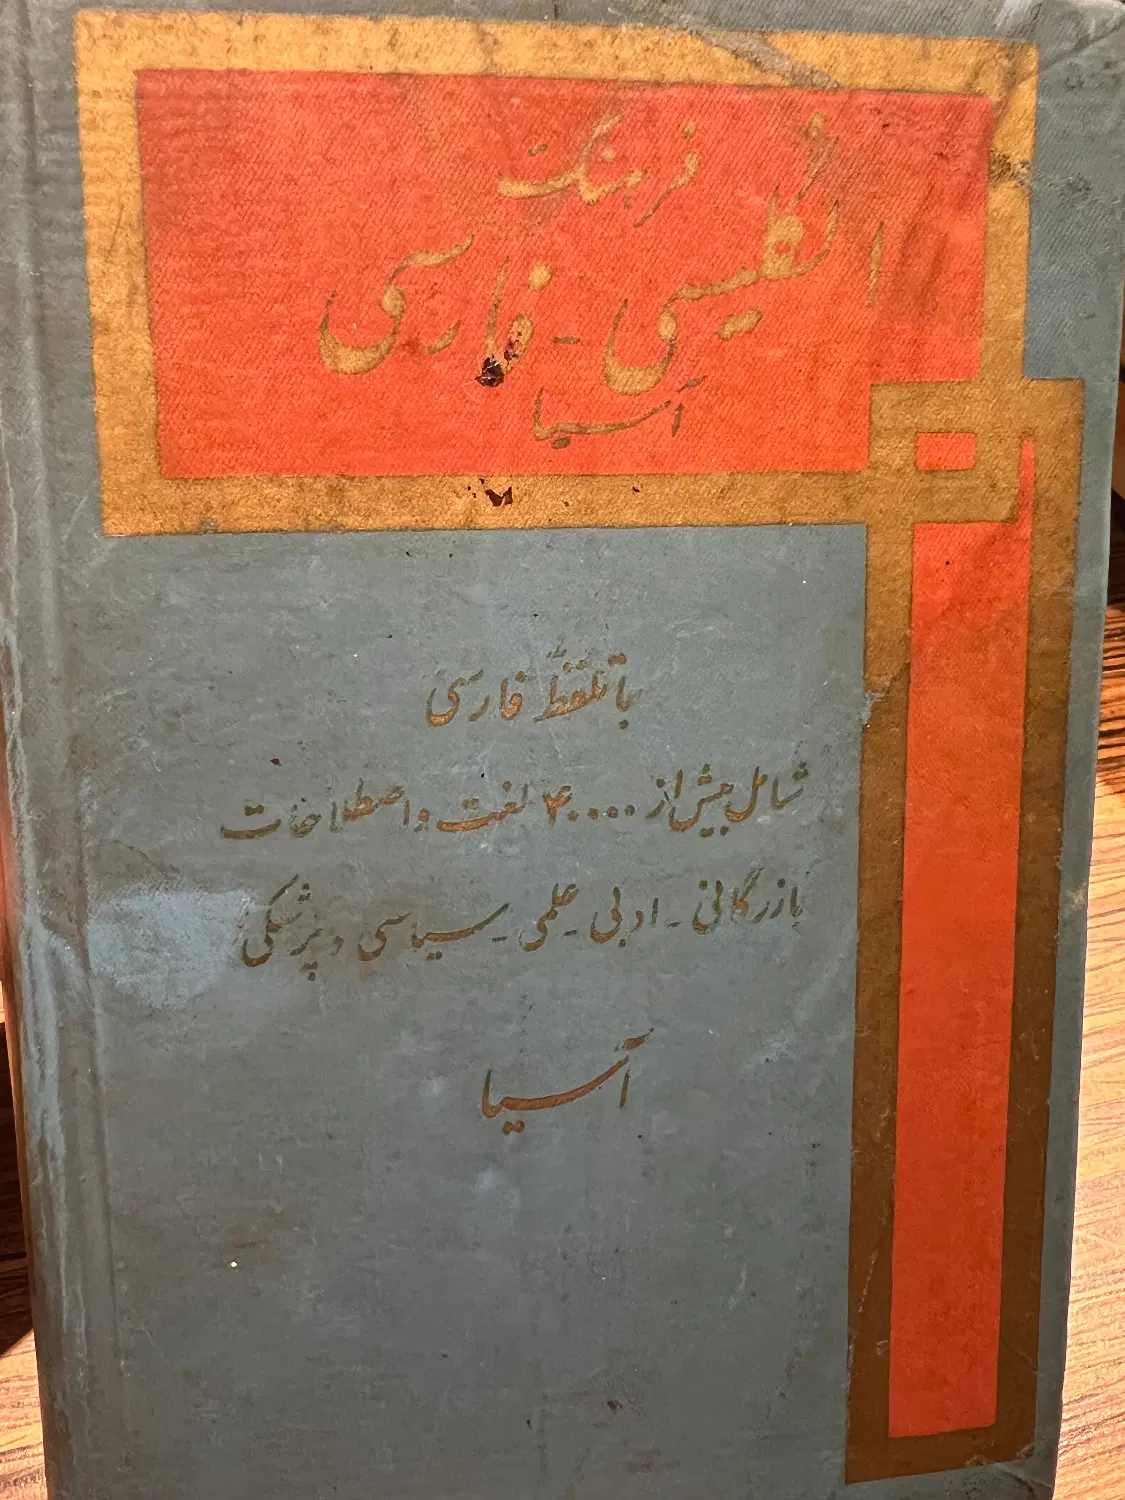 فرهنگ
انگلیسی - فارسی
آسیا
با تلفظ فارسی
شامل بیش از ۴۰۰۰۰ لغت و اصطلاحات
بازرگانی - ادبی - علمی - سیاسی و پزشکی
آسیا